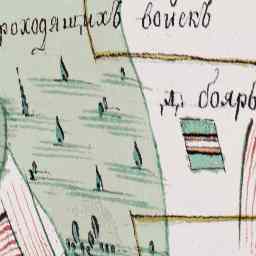 проходящихъ войскъ
д, бояръ